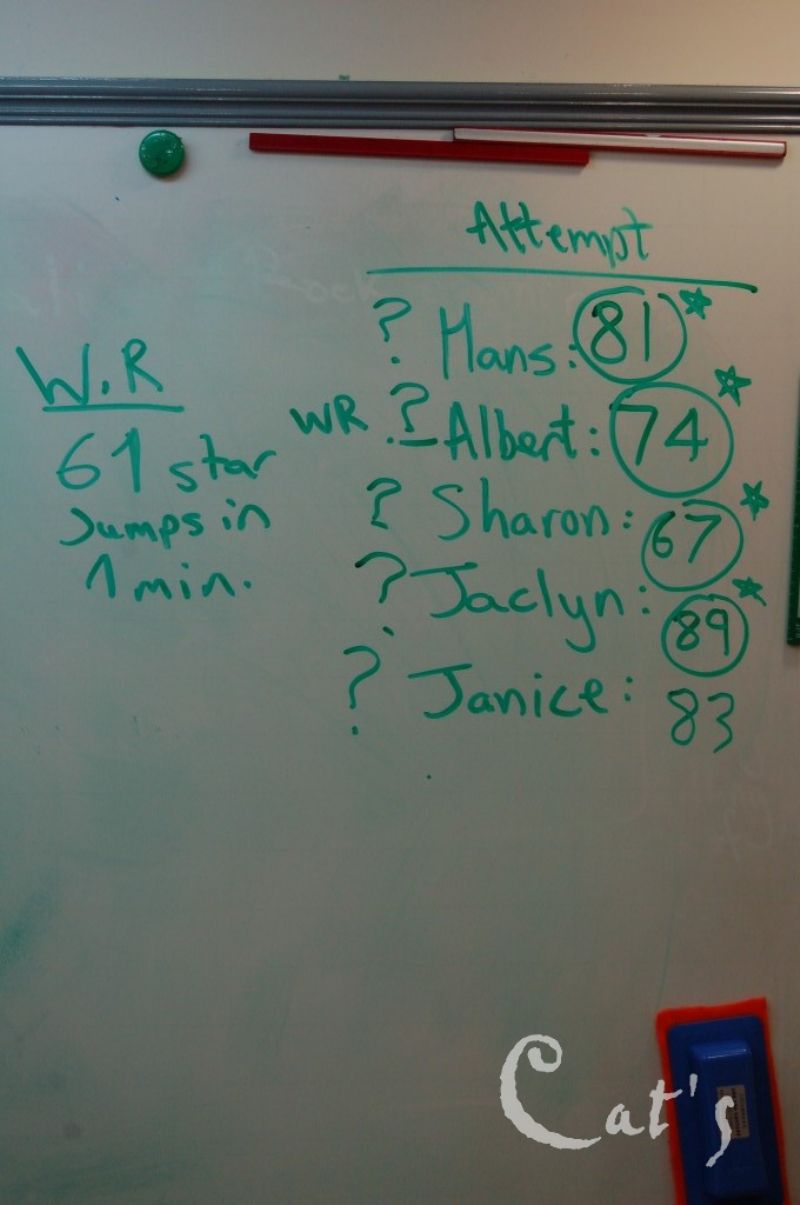 W.R
61 star
Jumps in
1 min.
Attempt
? Hans: 81
WR ? Albert: 74
? Sharon: 67
? Jaclyn: 89
? Janice: 83
Cat's